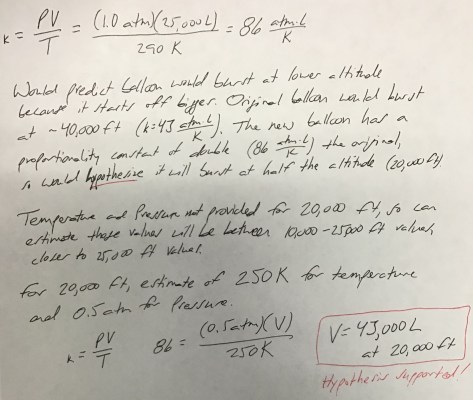 k = PV/T = (1.0 atm)(25,000 L)/290 K = 86 atm·L/K
Would predict balloon would burst at lower altitude
because it starts off bigger. Original balloon would burst
at ~40,000 ft (k=43 atm·L/K). The new balloon has a
proportionality constant of double (86 atm·L/K) the original,
so would hypothesize it will burst at half the altitude (20,000 ft)
Temperature and Pressure not provided for 20,000 ft, so can
estimate these values will be between 10,000-25,000 ft values,
closer to 25,000 ft values.
For 20,000 ft, estimate of 250K for temperature
and 0.5 atm for Pressure.
k = PV/T 86 = (0.5 atm)(V)/250K
V = 43,000 L
at 20,000 ft
Hypothesis supported!